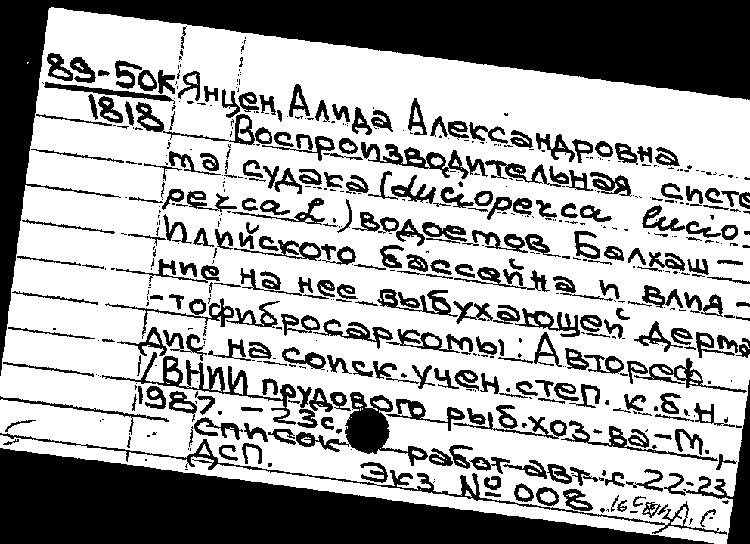 89-50К
1818
Янцен, Алида Александровна.
Воспроизводительная систе
ма судака (Luciopexca lucio-
pexca L.) водоемов Балхаш-
Илийского бассейна и влия-
ние на нее выбухающей дерма
-тофибросаркомы: Автореф.
дис. на соиск. учен. степ. к.б.н.
/ВНИИ прудового рыб. хоз-ва.-М.,
1987. - 23с.
Список работ авт.: с. 22-23
ДСП. Экз. № 008. А.С.